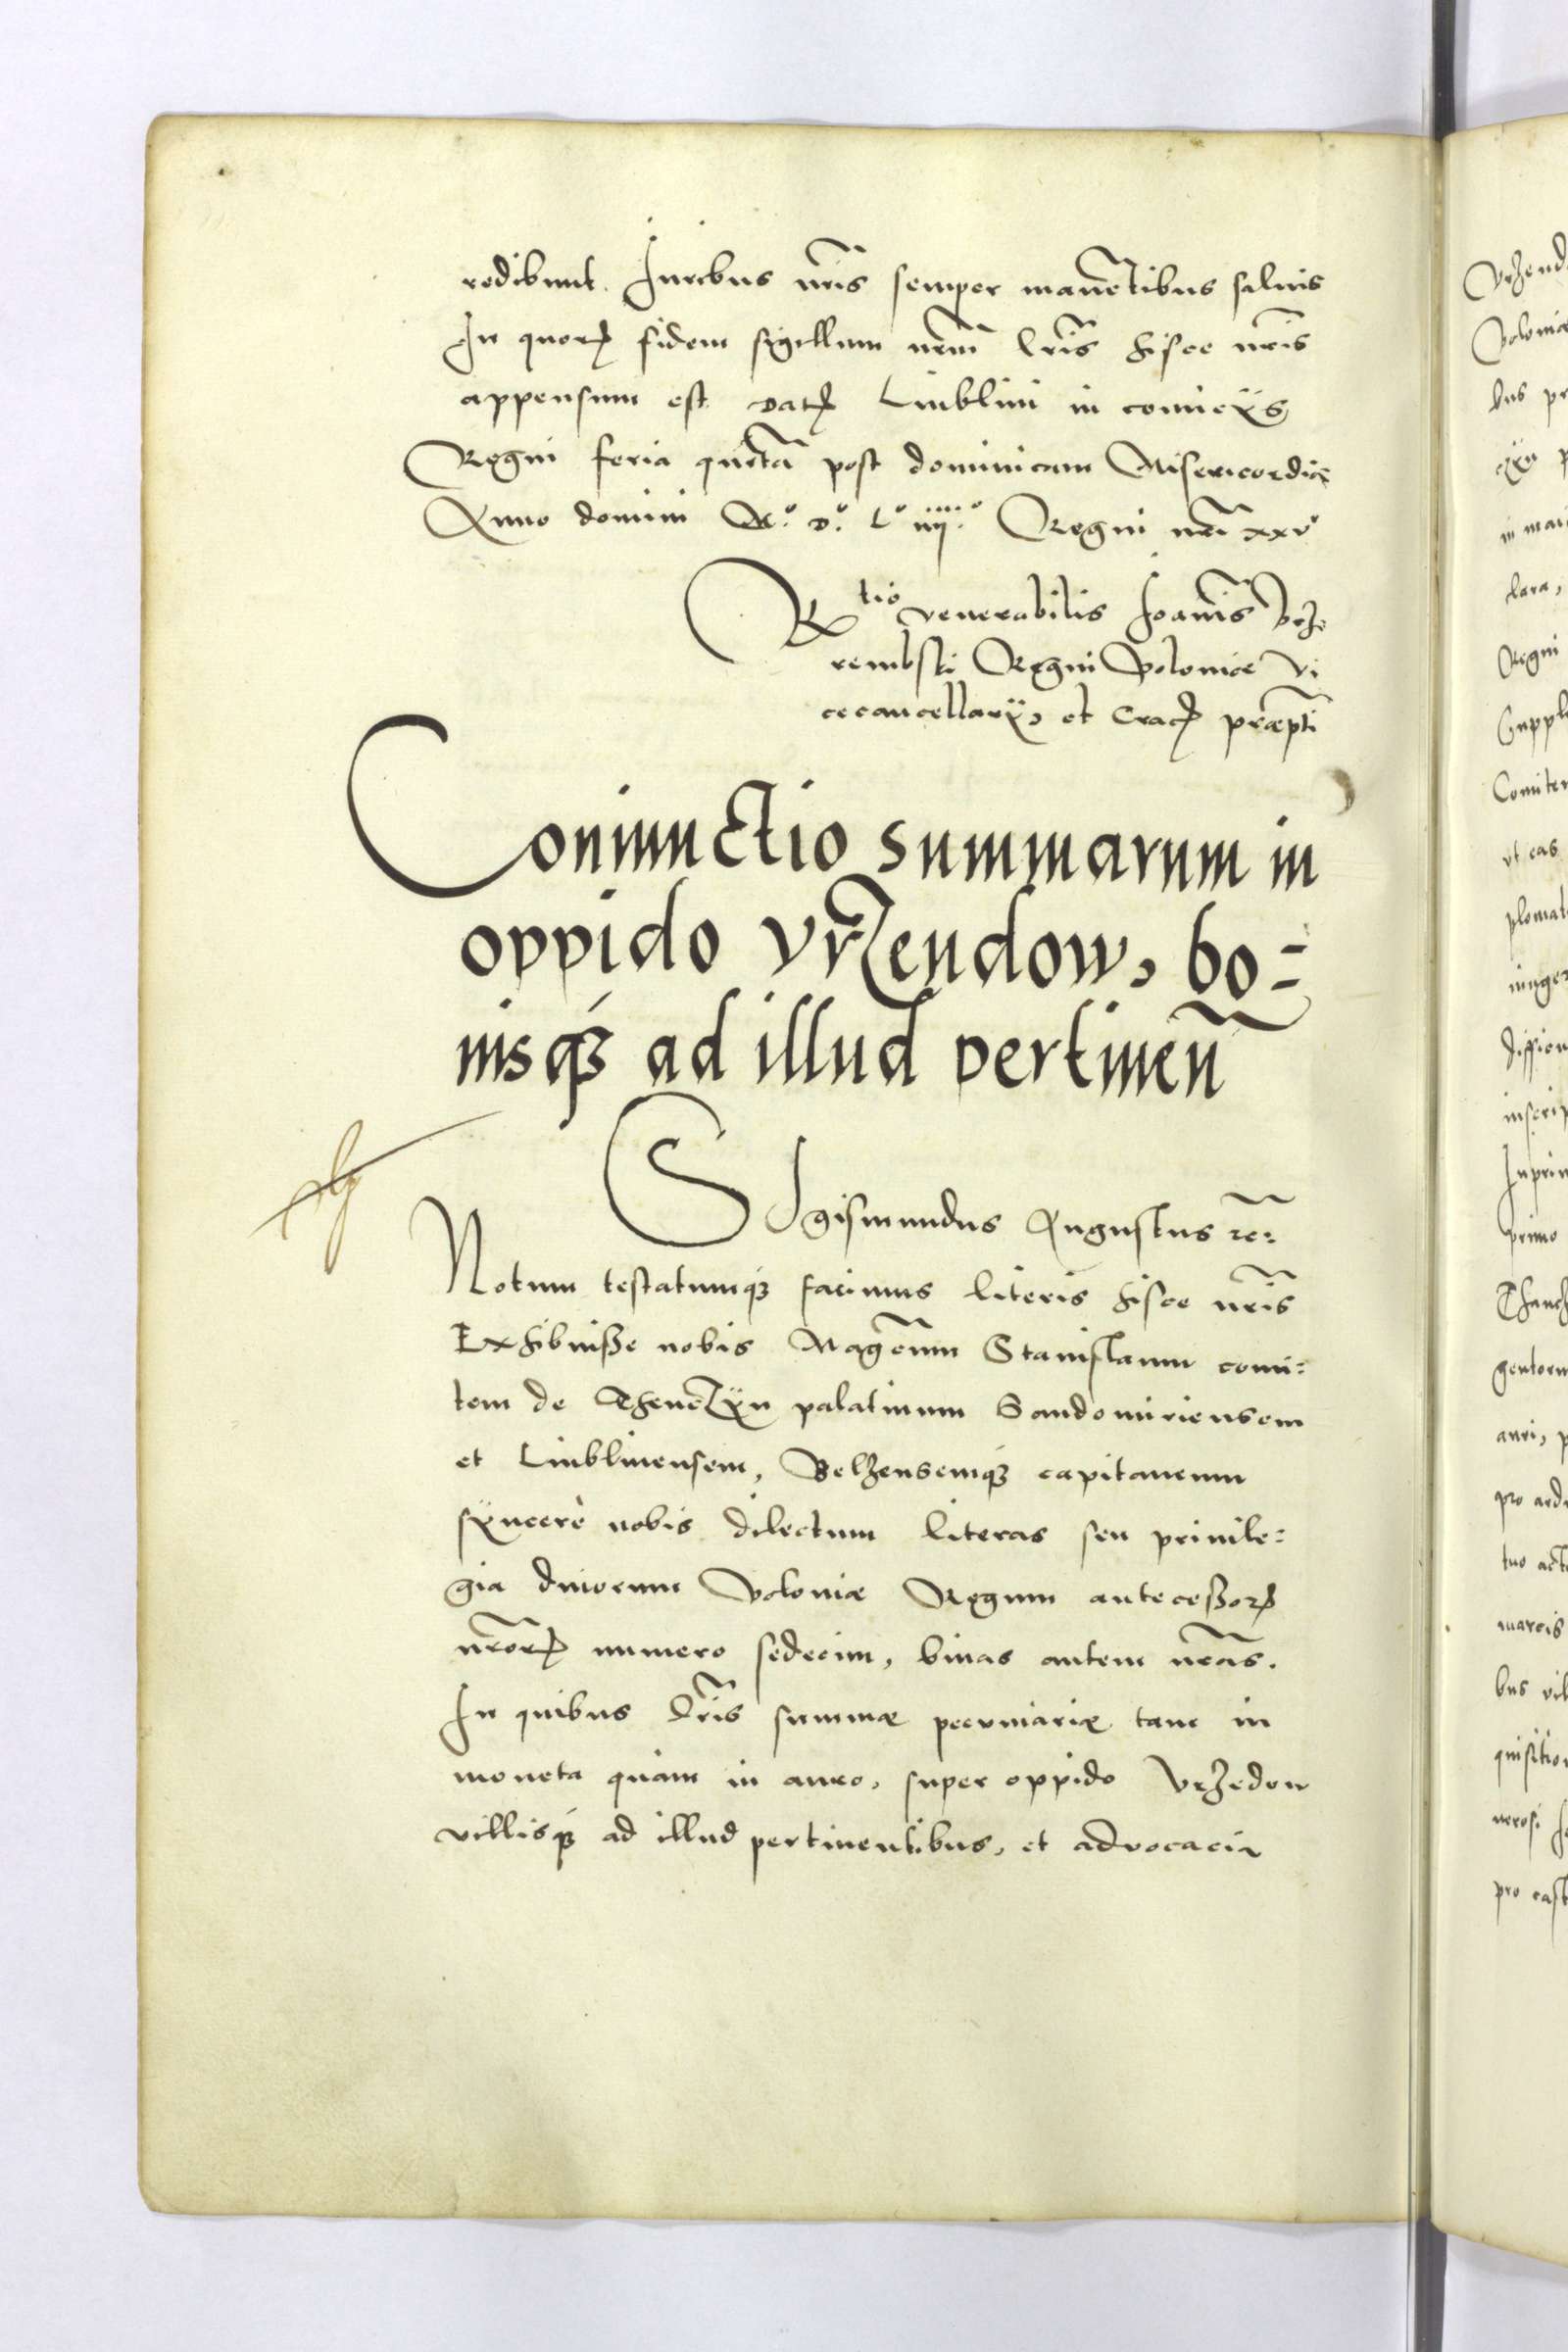 redibunt. Iuribus nr̃is semper manẽtibus saluis
In quorꝝ fidem sigillum nrm̃ lr̃is hisce nr̃is
appensum est Datꝝ Liublini in comicÿs
Regni feria quĩta post dominicam Misericordię
Anno domini M.º D.º L.º iiij.º Regni nrĩ xxvº
Rtio venerabilis Ioañis Prze
rembski Regni Poloniæ Vi
cecancellarÿ, et Cracꝝ præptĩ
Coniunctio summarum in
oppido Vrzendow, bo=
nisqꝫ ad illud pertineñ
SIgismundus Augustus rc̃:
Notum testatumqꝫ facimus literis hisce nr̃is
Exhibuiße nobis Mag̃cum Stanislaum comi=
tem de Thenczÿn palatinum Sandomiriensem
et Liublinensem, Belzensemqꝫ capitaneum
sÿncerè nobis dilectum literas seu priuile=
gia diuorum Poloniæ Regum anteceßorꝝ
nrõrꝝ numero sedecim, binas autem nrãs.
In quibus lr̃is summæ pecuniarię tam in
moneta quàm in auro, super oppido Vrzedow
villisqꝫ ad illud pertinentibus, et advocacia
Vrzend
Poloniæ
bus pr
in mai
lara,
Regni
Suppl
Comitem
vt eas
plomat
iunger
inscrip
Inprim
primo
Thanch
gentoru
auri, p
pro ard
tuo act
marcis
bus vil
quisitio
nerosi
pro cast